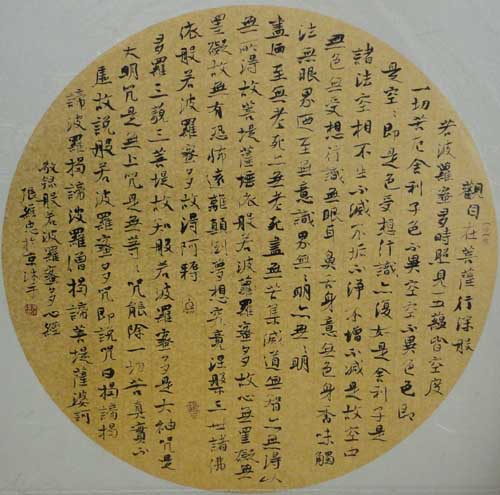 觀自在菩薩行深般
若波羅蜜多時照見五蘊皆空度
一切苦厄舍利子色不異空空不異色色即
是空空即是色受想行識亦復如是舍利子是
諸法空相不生不滅不垢不淨不增不減是故空中
無色無受想行識無眼耳鼻舌身意無色聲香味觸
法無眼界乃至無意識界無無明亦無無明
盡乃至無老死亦無老死盡無苦集滅道無智亦無得以
無所得故菩提薩埵依般若波羅蜜多故心無罣礙無
罣礙故無有恐怖遠離顛倒夢想究竟涅槃三世諸佛
依般若波羅蜜多故得阿耨
多羅三藐三菩提故知般若波羅蜜多是大神咒是
大明咒是無上咒是無等等咒能除一切苦真實不
虛故說般若波羅蜜多咒即說咒曰揭諦揭
諦波羅揭諦波羅僧揭諦菩提薩婆訶
敬錄般若波羅蜜多心經
張 忠於京